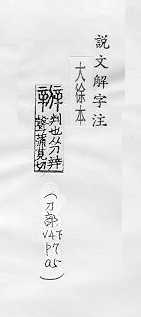 說文解字注
大徐本
辨
判也从刀辡
聲蒲莧切
(刀部
V4下
p7
a5)